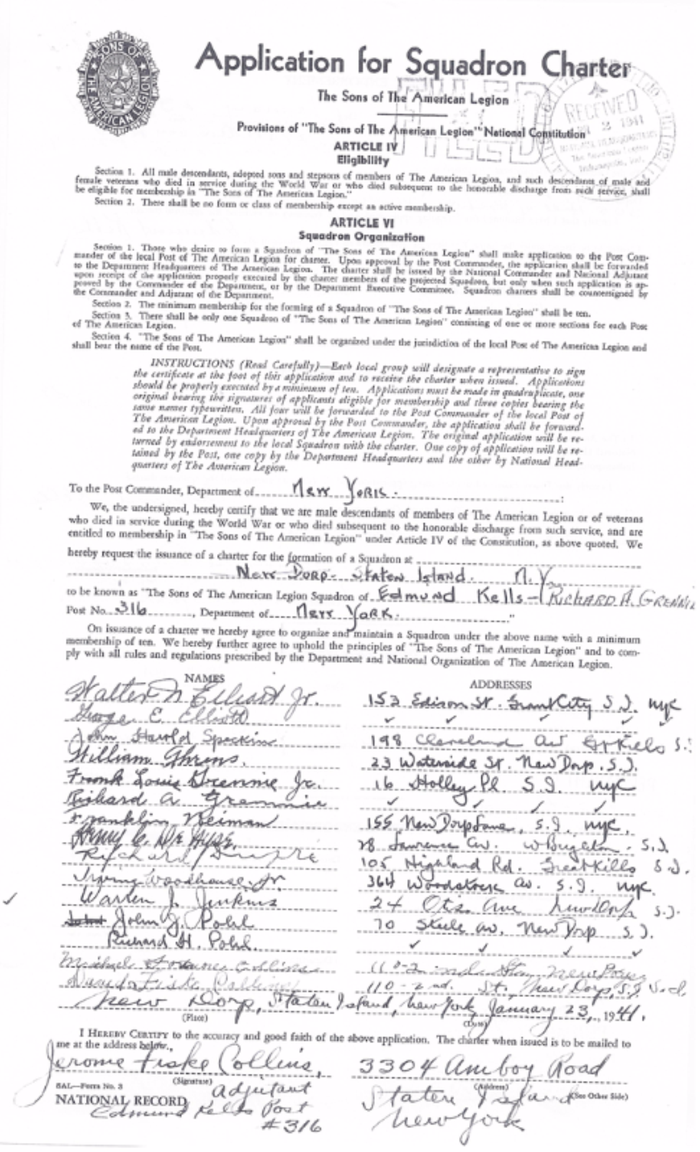 SONS OF
THE AMERICAN LEGION
Application for Squadron Charter
The Sons of The American Legion
FILED
RECEIVED
2 1941
Provisions of "The Sons of The American Legion" National Constitution
ARTICLE IV
Eligibility
Section 1. All male descendants, adopted sons and stepsons of members of The American Legion, and such descendants of male and
female veterans who died in service during the World War or who died subsequent to the honorable discharge from such service, shall
be eligible for membership in "The Sons of The American Legion."
Section 2. There shall be no form or class of membership except an active membership.
ARTICLE VI
Squadron Organization
Section 1. Those who desire to form a Squadron of "The Sons of The American Legion" shall make application to the Post Com-
mander of the local Post of The American Legion for charter. Upon approval by the Post Commander, the application shall be forwarded
to the Department Headquarters of The American Legion. The charter shall be issued by the National Commander and National Adjutant
upon receipt of the application properly executed by the charter members of the projected Squadron, but only when such application is ap-
proved by the Commander of the Department, or by the Department Executive Committee. Squadron charters shall be countersigned by
the Commander and Adjutant of the Department.
Section 2. The minimum membership for the forming of a Squadron of "The Sons of The American Legion" shall be ten.
Section 3. There shall be only one Squadron of "The Sons of The American Legion" consisting of one or more sections for each Post
of The American Legion.
Section 4. "The Sons of The American Legion" shall be organized under the jurisdiction of the local Post of The American Legion and
shall bear the name of the Post.
INSTRUCTIONS (Read Carefully)—Each local group will designate a representative to sign
the certificate at the foot of this application and to receive the charter when issued. Applications
should be properly executed by a minimum of ten. Applications must be made in quadruplicate, one
original bearing the signatures of applicants eligible for membership and three copies bearing the
same names typewritten. All four will be forwarded to the Post Commander of the local Post of
The American Legion. Upon approval by the Post Commander, the application shall be forward-
ed to the Department Headquarters of The American Legion. The original application will be re-
turned by endorsement to the local Squadron with the charter. One copy of application will be re-
tained by the Post, one copy by the Department Headquarters and the other by National Head-
quarters of The American Legion.
To the Post Commander, Department of New York. :
We, the undersigned, hereby certify that we are male descendants of members of The American Legion or of veterans
who died in service during the World War or who died subsequent to the honorable discharge from such service, and are
entitled to membership in "The Sons of The American Legion" under Article IV of the Constitution, as above quoted. We
hereby request the issuance of a charter for the formation of a Squadron at
New Dorp - Staten Island. N.Y.
to be known as "The Sons of The American Legion Squadron of Edmund Kells - RICHARD A. GRENNIE
Post No. 316, Department of New York."
On issuance of a charter we hereby agree to organize and maintain a Squadron under the above name with a minimum
membership of ten. We hereby further agree to uphold the principles of "The Sons of The American Legion" and to com-
ply with all rules and regulations prescribed by the Department and National Organization of The American Legion.
NAMES ADDRESSES
Walter N Elliott Jr. 153 Edison St. Grant City S.I. NYC
George E. Elliott ✓ ✓ ✓ ✓ ✓
John Harold Speckin 198 Cleveland Av Gt Kills S.I.
William Ahrens. 23 Waterside St. New Dorp. S.I.
Frank Louis Grennie Jr. 16 Holley Pl. S.I. NYC
Richard A. Grennie ✓ ✓ ✓ ✓
Franklin Neiman 155 New Dorp Lane, S.I. NYC.
Henry C. 28 Lawrence Av. W Brighton. S.I.
Richard 105 Highland Rd. Great Kills S.I.
Irving Woodhouse Jr 364 Woodstock Av. S.I. NYC.
✓ Warren J. Jenkins 24 Otis Ave New Dorp S.I.
John J. Pohl 70 Steele av. New Dorp S.I.
Richard H. Pohl. ✓ ✓ ✓ ✓
Michael Collins 110-2 New Dorp
Fiske Collins 110-2nd. St. New Dorp, S.I.
New Dorp, Staten Island, New York, January 23, 1941.
(Place) (Date)
I HEREBY CERTIFY to the accuracy and good faith of the above application. The charter when issued is to be mailed to
me at the address below.
Jerome Fiske Collins, 3304 Amboy Road
(Signature) (Address)
SAL—Form No. 3 Adjutant Staten Island (See Other Side)
NATIONAL RECORD
Edmund Kells Post New York
#316